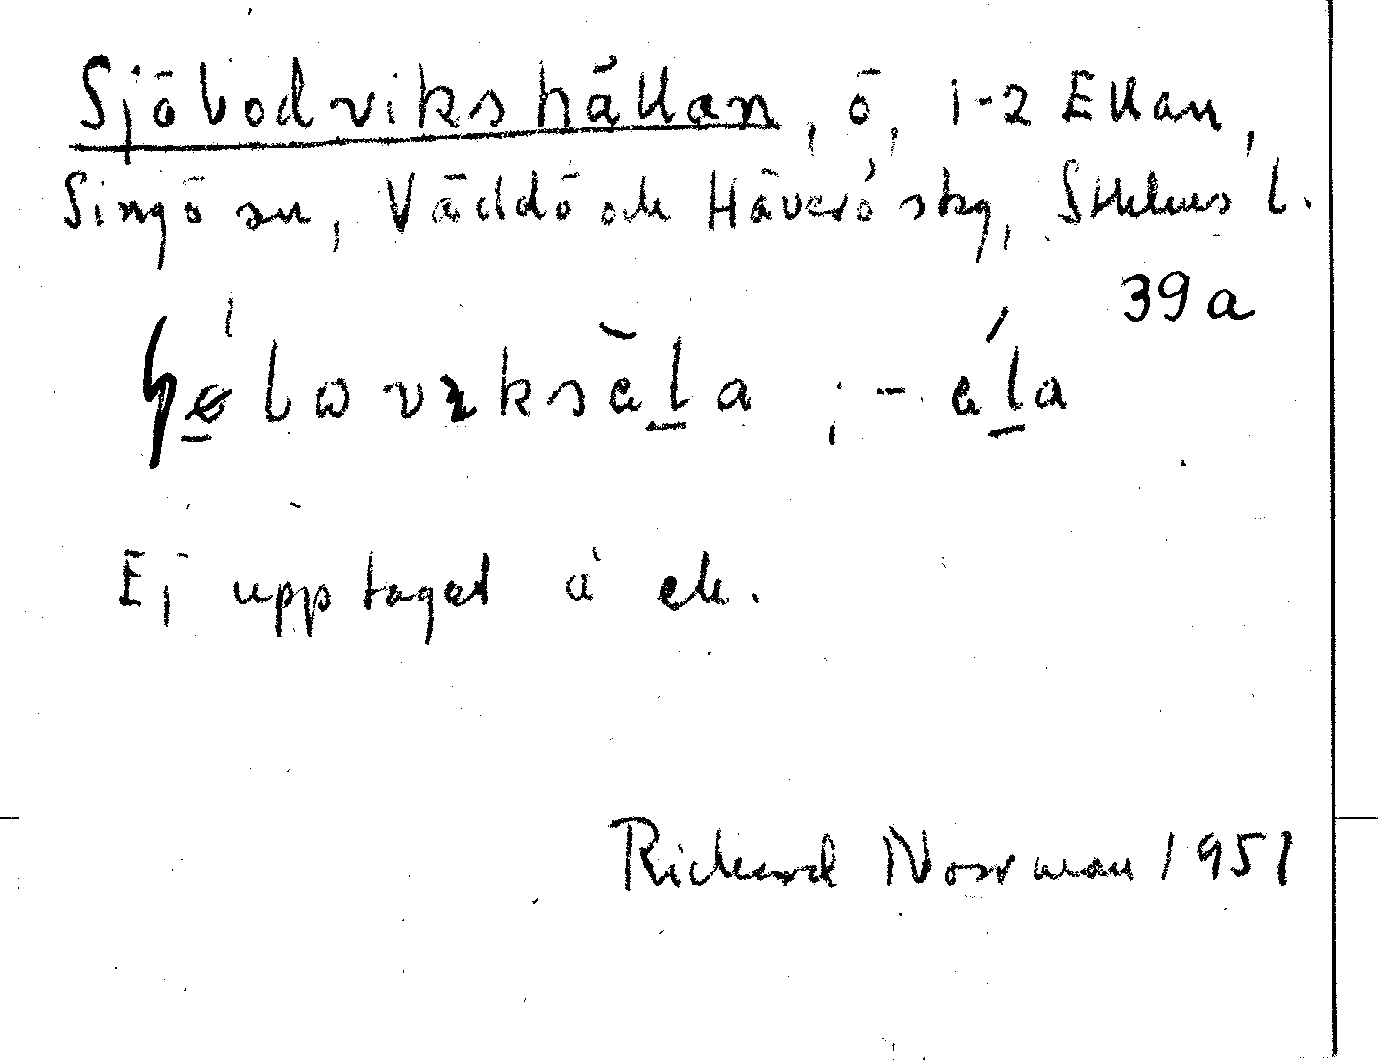 Sjöbodvikshällan, ö, 1-2 Ellan,
Singö sn, Väddö och Häverö skg, Sthlms l.
39a
Ej upptaget å ek.
Rickard Norrman 1951